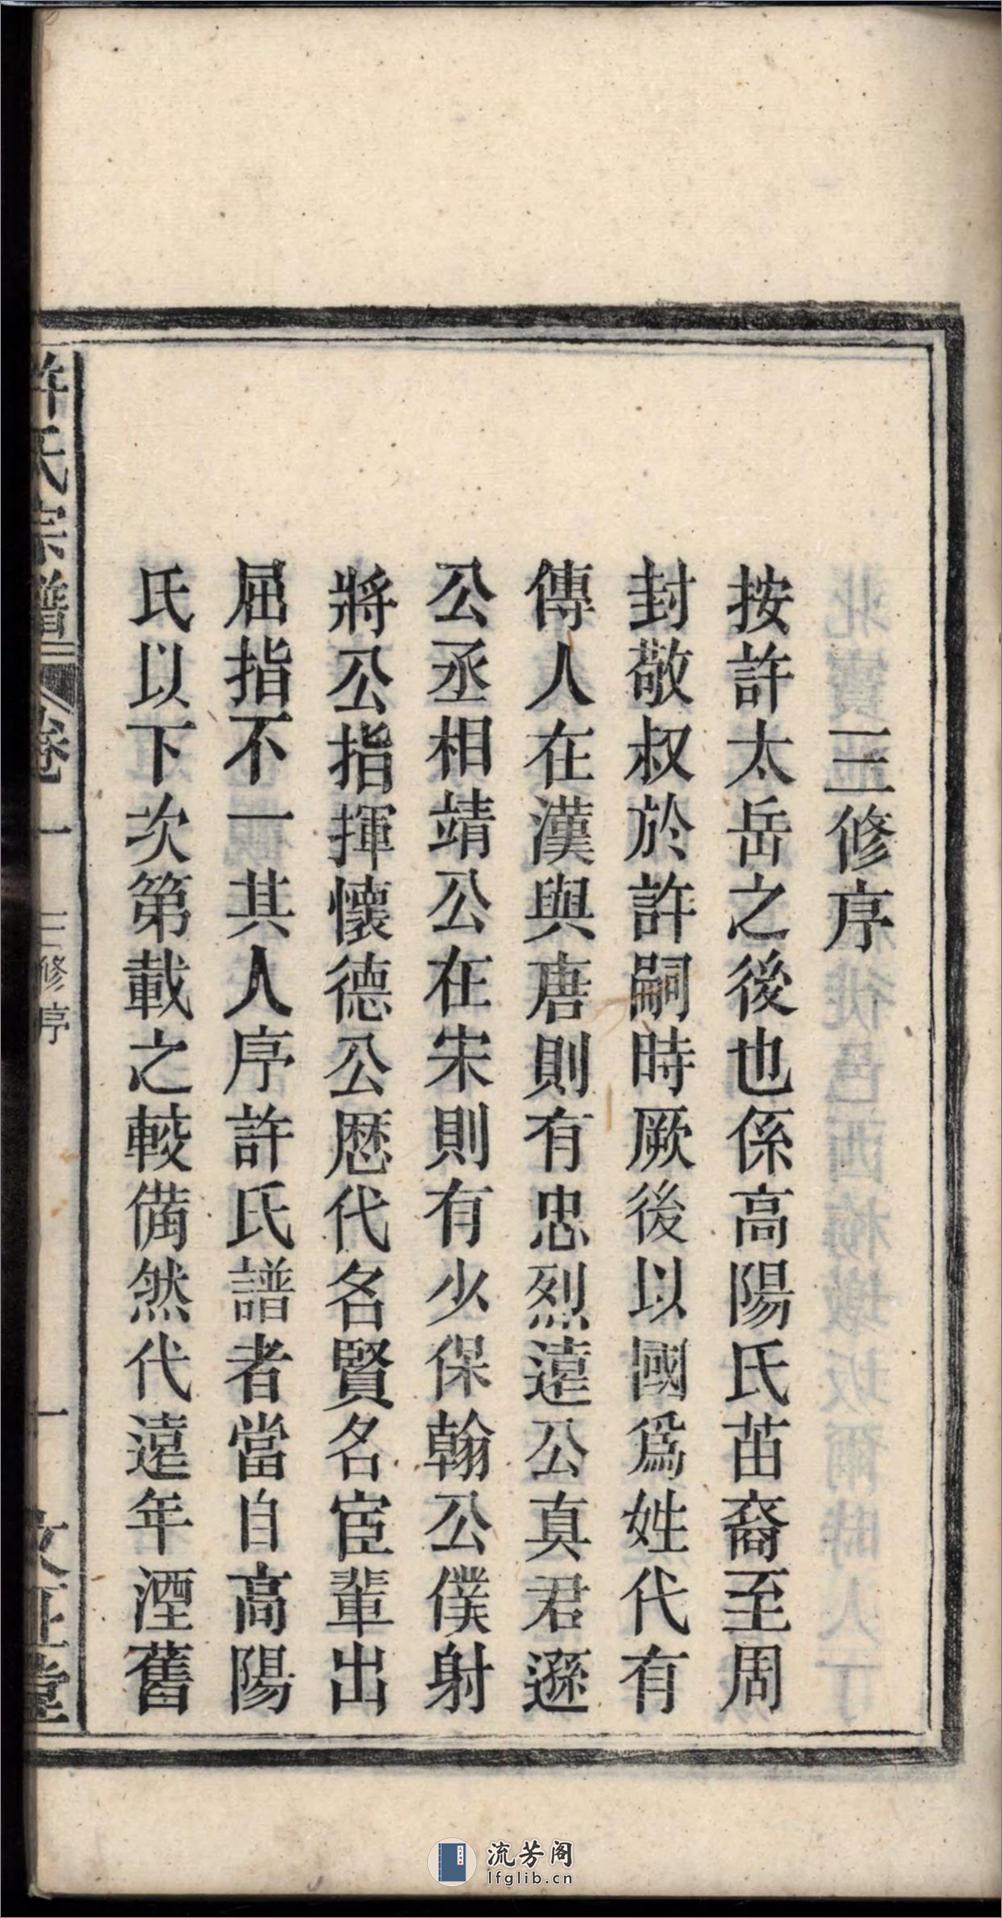 三修序
按許太岳之後也係高陽氏苗裔至周
封敬叔於許嗣時厥後以國爲姓代有
傳人在漢與唐則有忠烈遠公真君遜
公丞相靖公在宋則有少保翰公僕射
將公指揮懷德公歴代名賢名宦輩出
屈指不一其人序許氏譜者當自高陽
氏以下次第載之較備然代遠年湮舊
許氏宗譜 卷一 三修序 一 堂
流芳阁
lfglib.cn